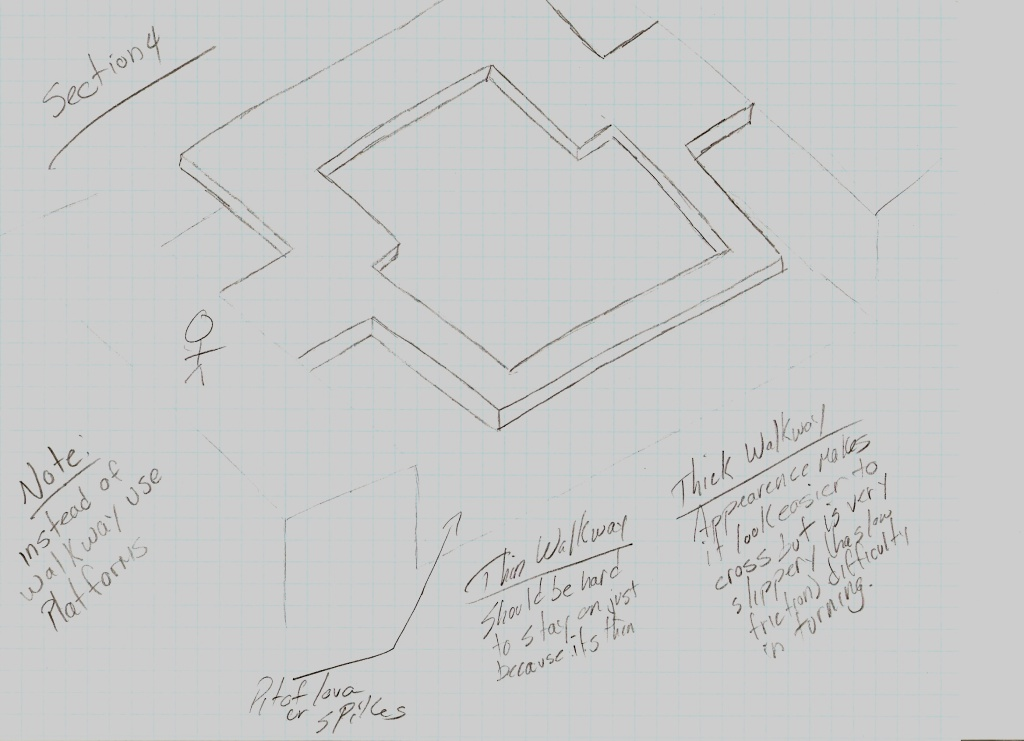 Section 4
Note:
instead of
walkway use
Platforms
Pit of lava
or spikes
Thin Walkway
Should be hard
to stay on just
because its thin
Thick Walkway
Appearence makes
it look easier to
cross but is very
slippery (has low
friction) difficulty
in turning.